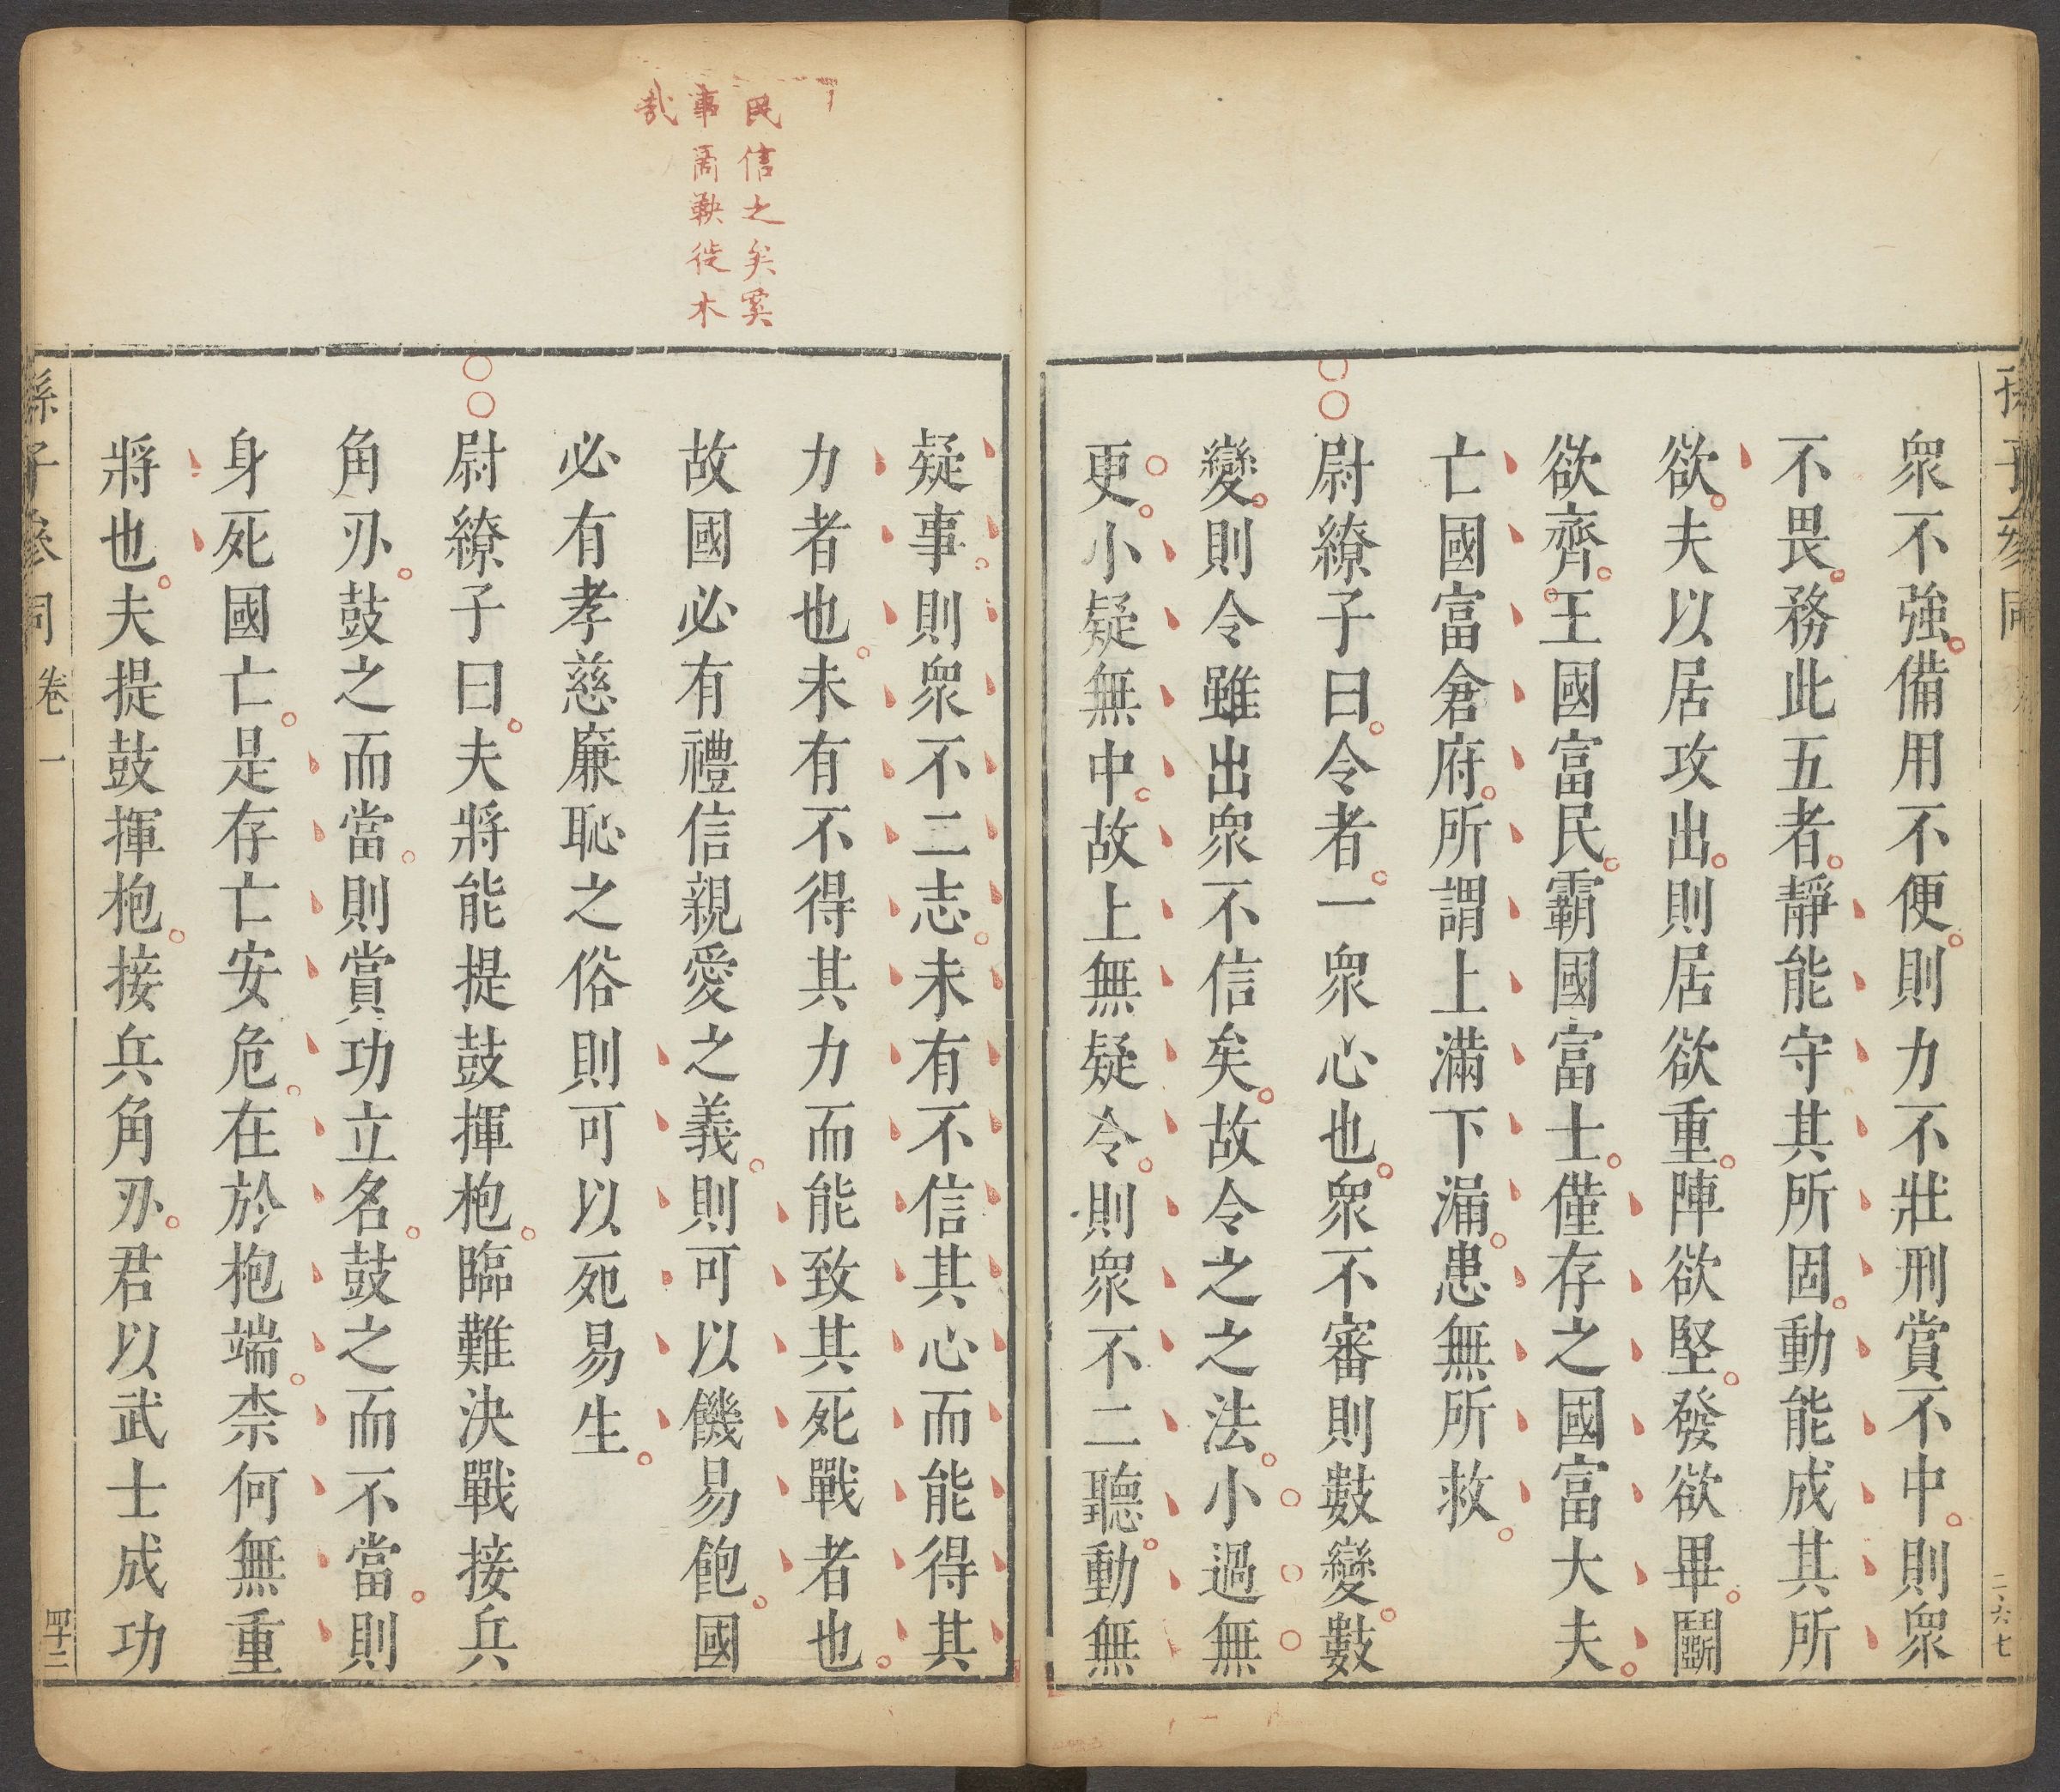 孫子參同
衆不強備用不便則力不壯刑賞不中則衆
不畏務此五者靜能守其所固動能成其所
欲夫以居攻出則居欲重陣欲堅發欲畢鬭
欲齊王國富民霸國富士僅存之國富大夫
亡國富倉府所謂上滿下漏患無所救
尉繚子曰令者一衆心也衆不審則數變數
變則令雖出衆不信矣故令之之法小過無
更小疑無中故上無疑令則衆不二聽動無
民信之矣奚
事商鞅徙木
哉
疑事則衆不二志未有不信其心而能得其
力者也未有不得其力而能致其死戰者也
故國必有禮信親愛之義則可以饑易飽國
必有孝慈廉恥之俗則可以死易生
尉繚子曰夫將能提鼓揮枹臨難決戰接兵
角刅鼓之而當則賞功立名鼓之而不當則
身死國亡是存亡安危在於枹端柰何無重
將也夫提鼓揮枹接兵角刅君以武士成功
孫子參同 卷一 四十二